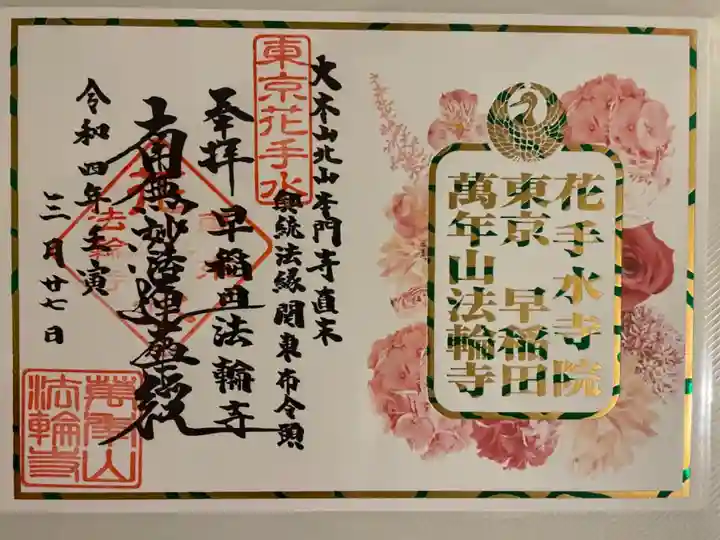 花手水寺院
東京 早稲田
萬年山法輪寺
大本山北山本門寺直末
興統法縁関東布令頭
東京花手水
奉拝 早稲田法輪寺
南無妙法蓮華経
令和四年壬寅
三月廿七日
萬年山
法輪寺